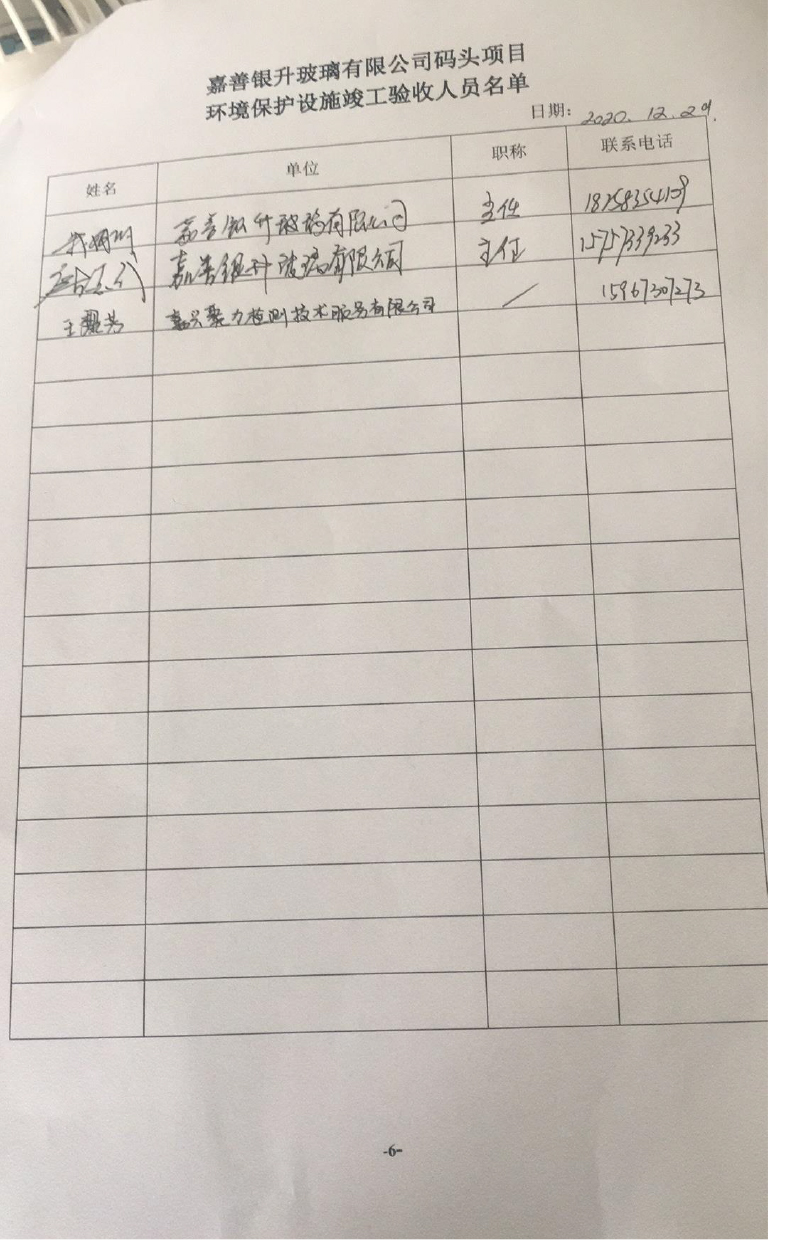 嘉善银升玻璃有限公司码头项目
环境保护设施竣工验收人员名单
日期: 2020.12.29.
姓名 单位 职称 联系电话
嘉善银升玻璃有限公司 主任 18258354109
嘉善银升玻璃有限公司 主任 15757339233
王 芳 嘉兴聚力检测技术服务有限公司 / 15967307273
-6-